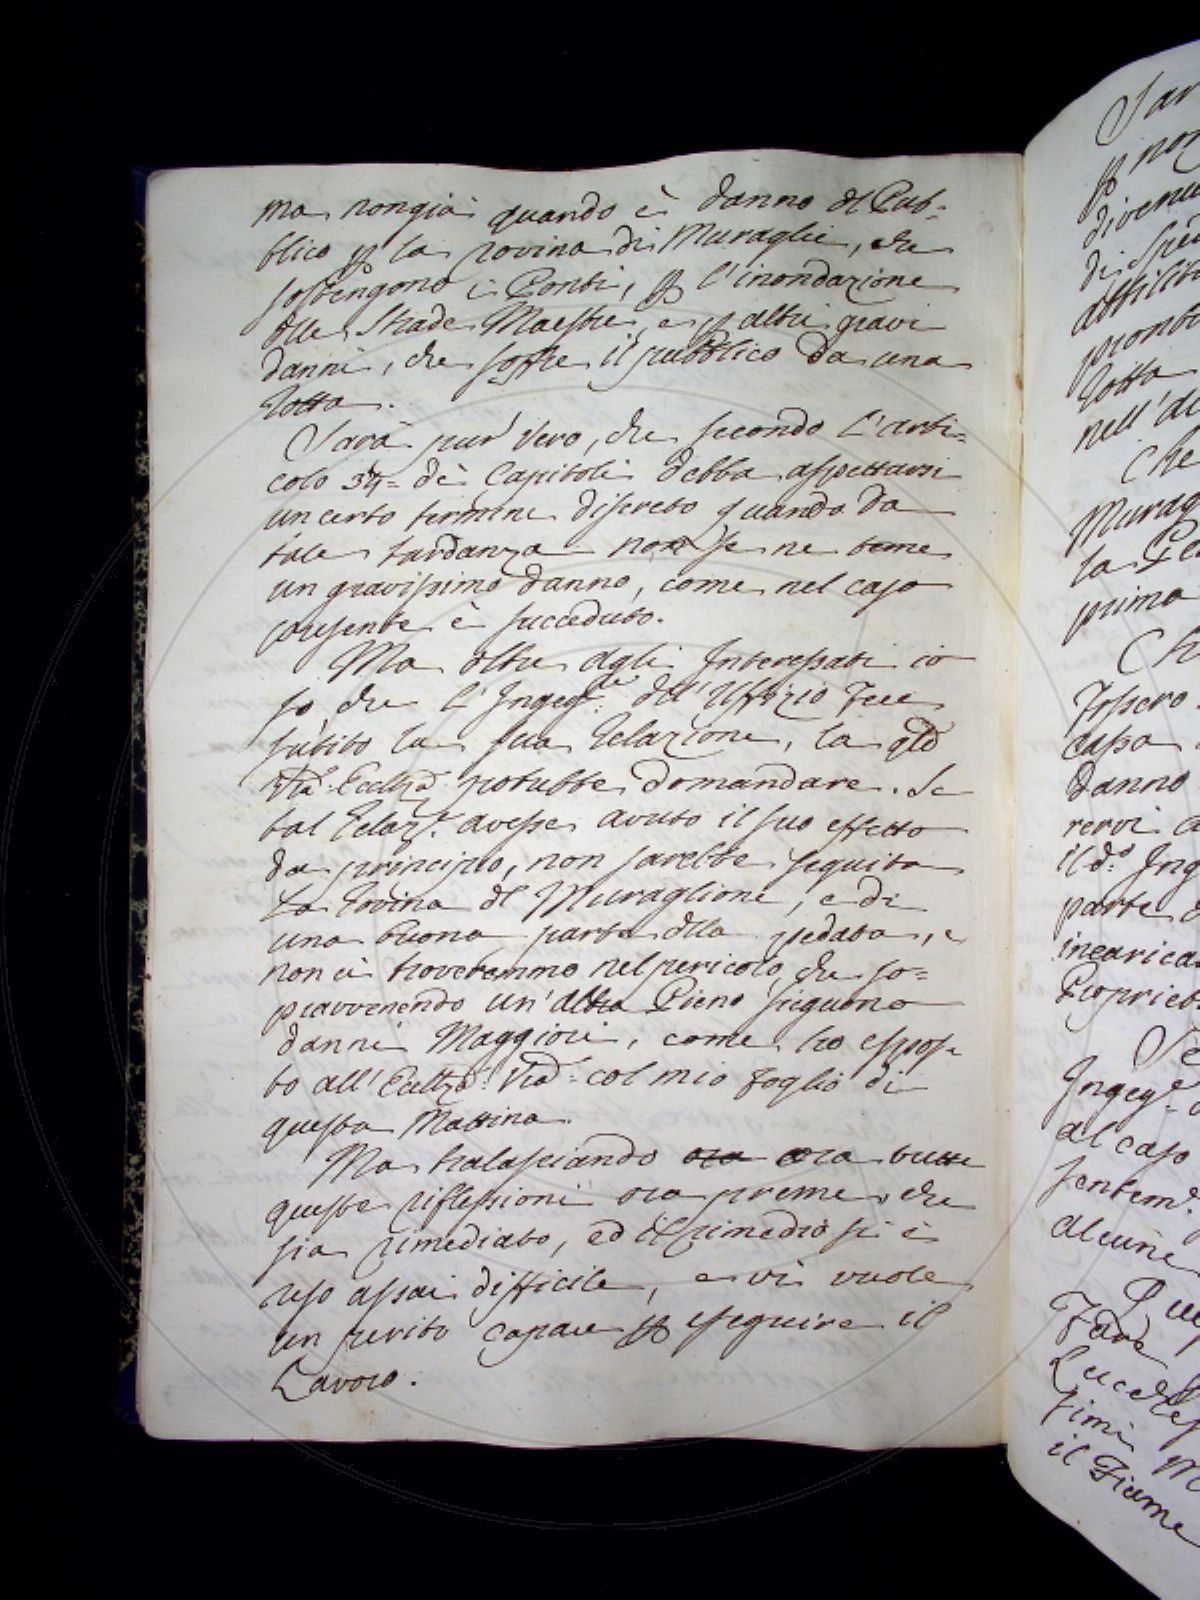 ma non già quando è danno del Pub-
blico p la rovina di Muraglie, che
sostengono i Ponti, p l'inondazione
delle Strade Maestre, e p altri gravi
danni, che soffre il pubblico da una
Rotta.
Sarà pur vero, che secondo l'arti-
colo 34= de Capitoli debba aspettarsi
un certo termine discreto quando da
tale tardanza non se ne teme
un gravissimo danno, come nel caso
presente è succeduto.
Ma oltre agli Interessati io
so che l'Ingeg.re dell'Uffizio fece
subito la sua Relazione, la qle
Vra Ecclza potrebbe domandare. Se
tal Relaz.e avesse avuto il suo effetto
da principio, non sarebbe seguita
la Rovina del Muraglione, e di
una buona parte della pedata, e
non ci troveremmo nel pericolo, che so=
pravvenendo un'altra Pieno seguono
danni Maggiori, come ho espos-
to all'Ecclza Vra col mio foglio di
questa Mattina.
Ma tralasciando ora ora tutte
queste riflessioni ora preme, che
sia rimediato, ed il rimedio si è
reso assai difficile, e vi vuole
un perito capace p eseguire il
Lavoro.
Sar
p non
diven
di spe
nell'
Che
Murag
la
prima
Ch
danno
il do. Ing
parte
incarica
Propriet
Se
Ingeg.e
al caso
alcune
Fare
il Fiume